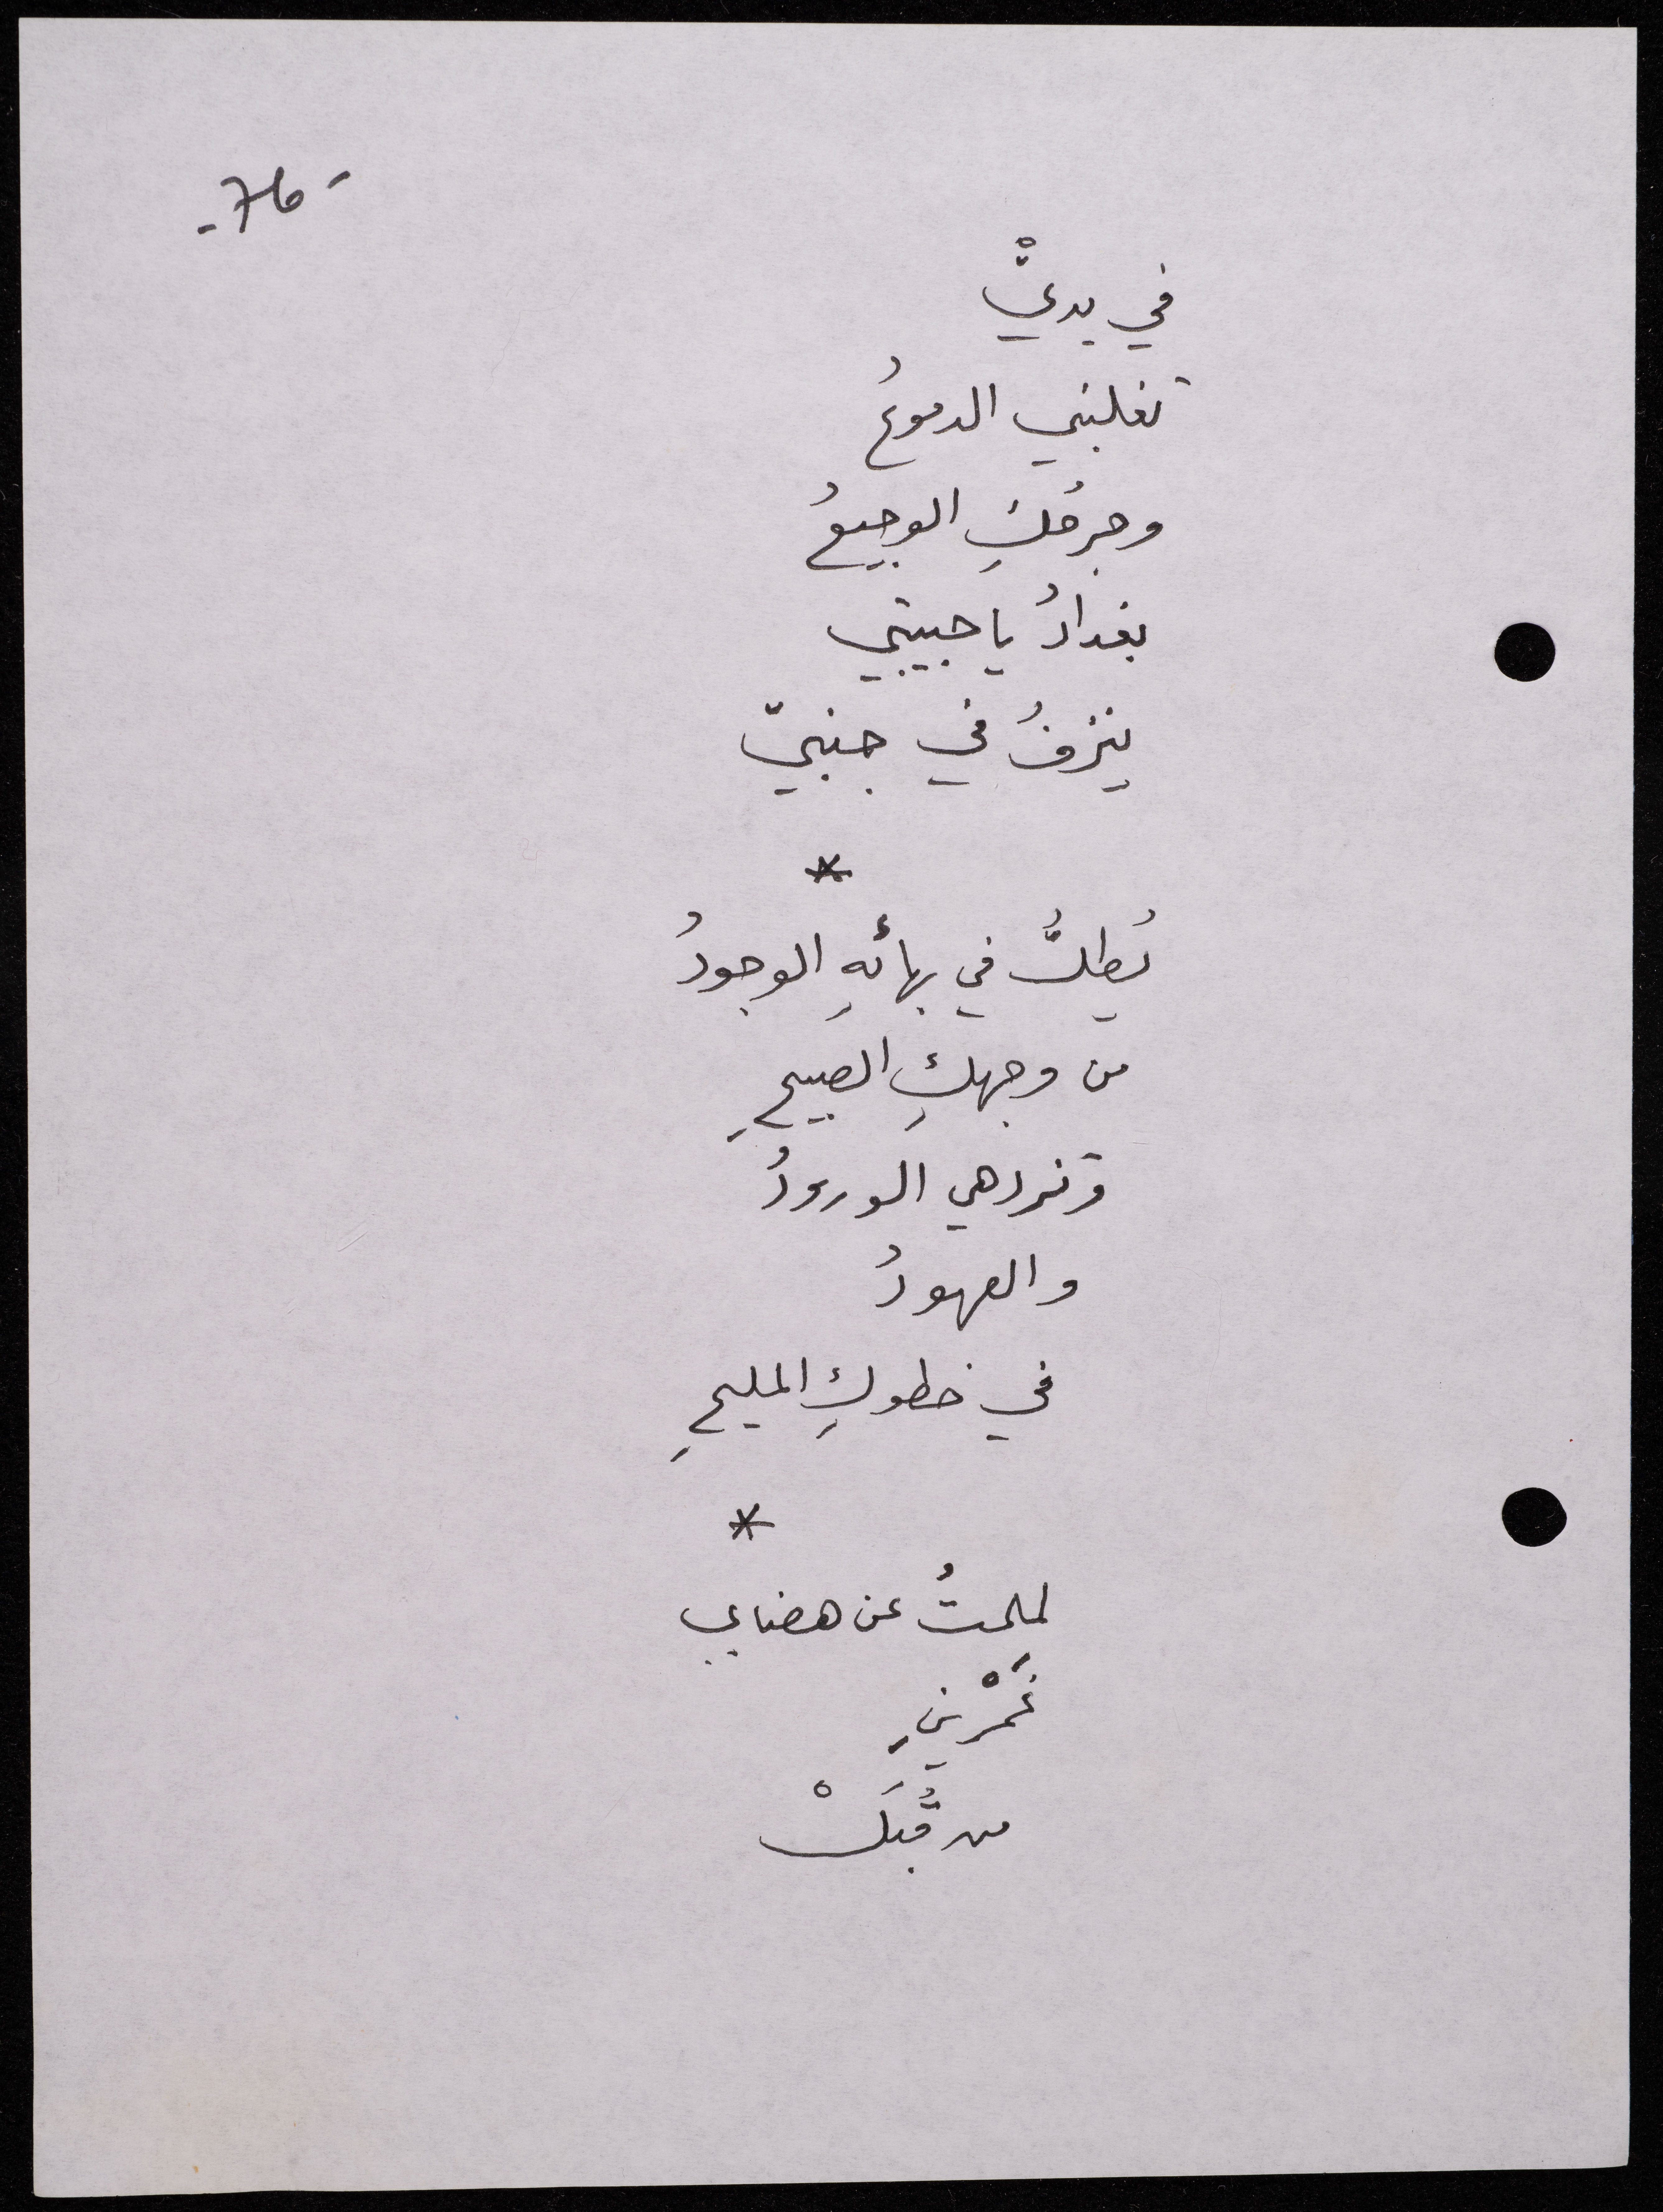 -76-
في يديّْ
تغلبني الدموعُ
وجرحُكِ الوجيعُ
بغدادُ يا حبيبتي
ينزفُ في جنبيّ
*
يُطلُّ في بهائهِ الوجودُ
من وجهكِ الصبيحِ
وتزدهي الورودُ
والعهودُ
في خطوكِ المليحِ
*
لملمتُ عن هضابي
غَمْرينِ
من قُبَلْ